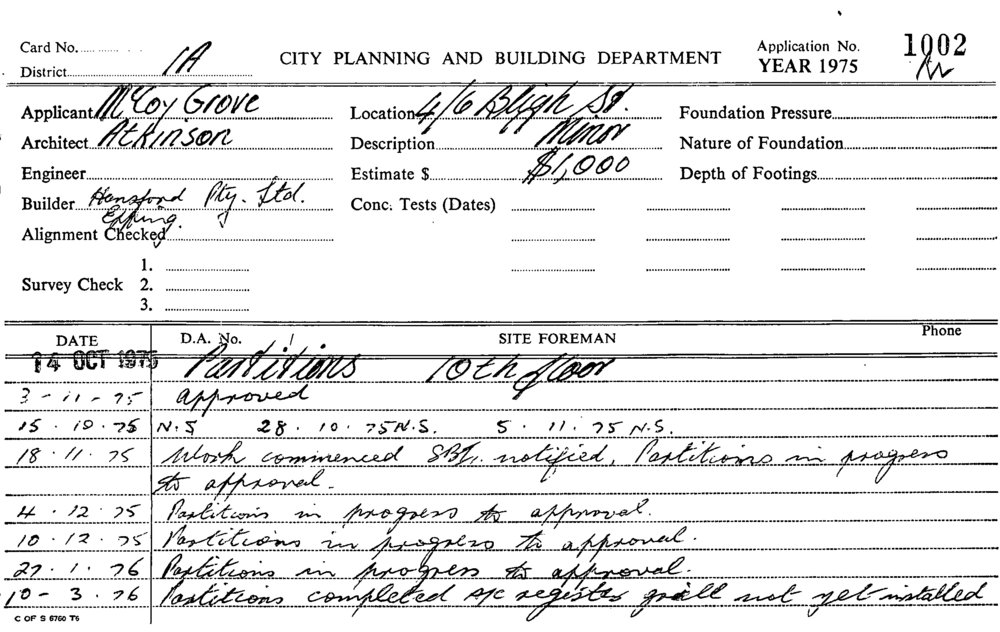 Card No.
District 1A
CITY PLANNING AND BUILDING DEPARTMENT
Application No. 1002
YEAR 1975
Applicant McCoy Grove
Location 4/6 Bligh St.
Foundation Pressure
Architect Atkinson
Description Minor
Nature of Foundation
Engineer
Estimate $ $1,000
Depth of Footings
Builder Hansford Pty. Ltd.
Epping.
Conc. Tests (Dates)
Alignment Checked
1.
Survey Check 2.
3.
DATE D.A. No. / SITE FOREMAN Phone
14 OCT 1975 Partitions 10th floor
3-11-75 approved
15.10.75 N.S 28.10.75 N.S. 5.11.75 N.S.
18.11.75 Work commenced notified, Partitions in progress
to approval.
4.12.75 Partitions in progress to approval.
10.12.75 Partitions in progress to approval.
27.1.76 Partitions in progress to approval.
10-3.76 Partitions completed A/C register grill not yet installed
C OF S 6760 T6